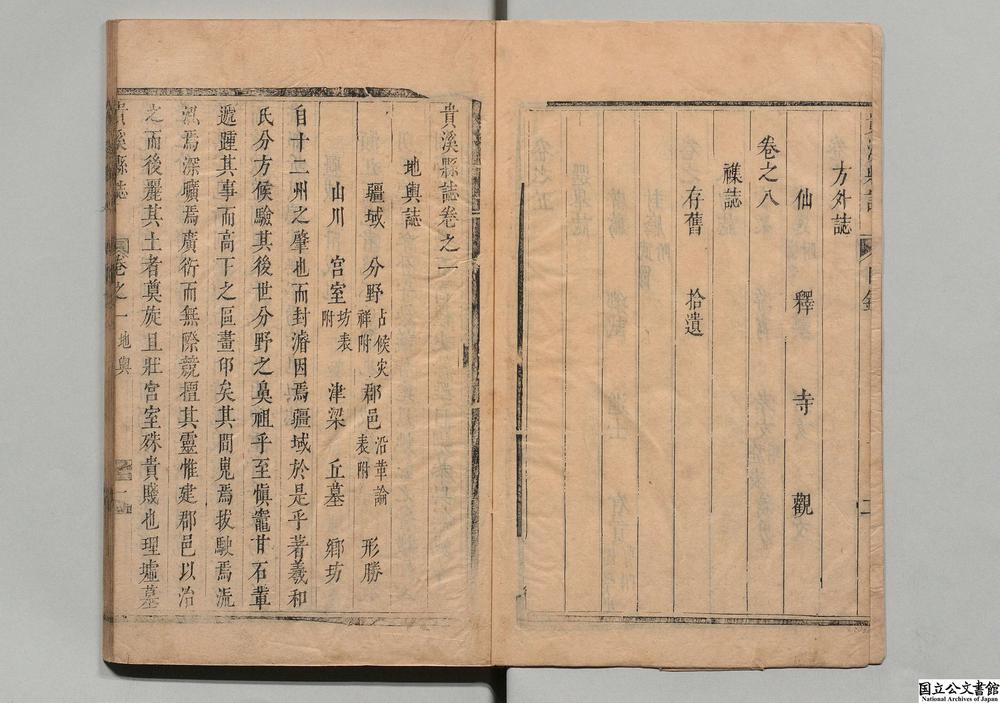 方外誌
仙 釋 寺 觀
卷之八
襍誌
存舊 拾遺
貴溪縣誌卷之一
地輿誌
疆域 分野占候災祥附 郡邑沿革論表附 形勝
山川 宮室坊表附 津梁 丘墓 鄉坊
自十二州之肇也而封濬因焉疆域於是乎著羲和
氏分方候驗其後世分野之鼻祖乎至愼竈甘石輩
遞踵其事而高下之區畫卬矣其間嵬焉拔駛焉流
焉深曠焉廣衍而無際競擅其靈惟建郡邑以治
之而後麗其土者奠旋且壯宮室殊貴賤也理墟墓
貴溪縣誌 卷之一 地輿 一
国立公文書館
National Archives of Japan